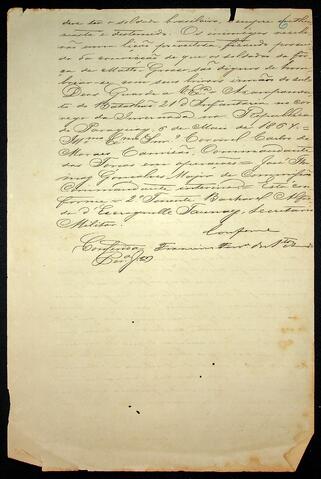 deve ser o soldado brasileiro, sempre
e destemido. Os inimigos recebe-
rão uma lição proveitosa, ficando possui-
do da convicção de que os soldados da for-
ça de Matto Grosso são dignos de hom-
brear-se com seus livros irmãos do sul.
Deos Guarde a VExª Acampamen-
to do Batalhão 21 d'Infantaria no
corrego da Invernada na Republica
do Paraguay 6 de Maio de 1867.=
Illmo Exmo Snr. Coronel Carlos de
Moraes Camisão Commandante
das Forças em operações = José Tho-
maz Gonçalves, Major de Commissão
Commandante interino = Está con-
forme = 2º Tenente Bacharel Alfre-
do d'Escragnolle Taunay, Secretario
Militar.
Conforme
Francisco